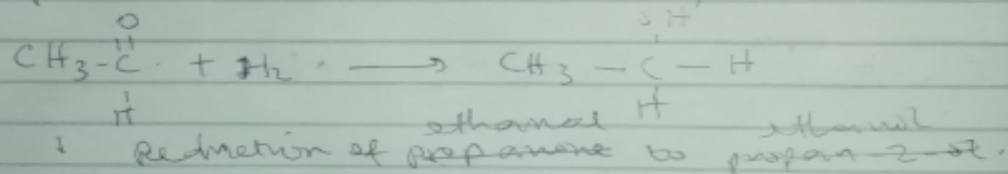 O
CH3-C + H2 ⟶ CH3 — C — H
H H
ethanal ethanol
Reduction of propanone to propan-2-ol.